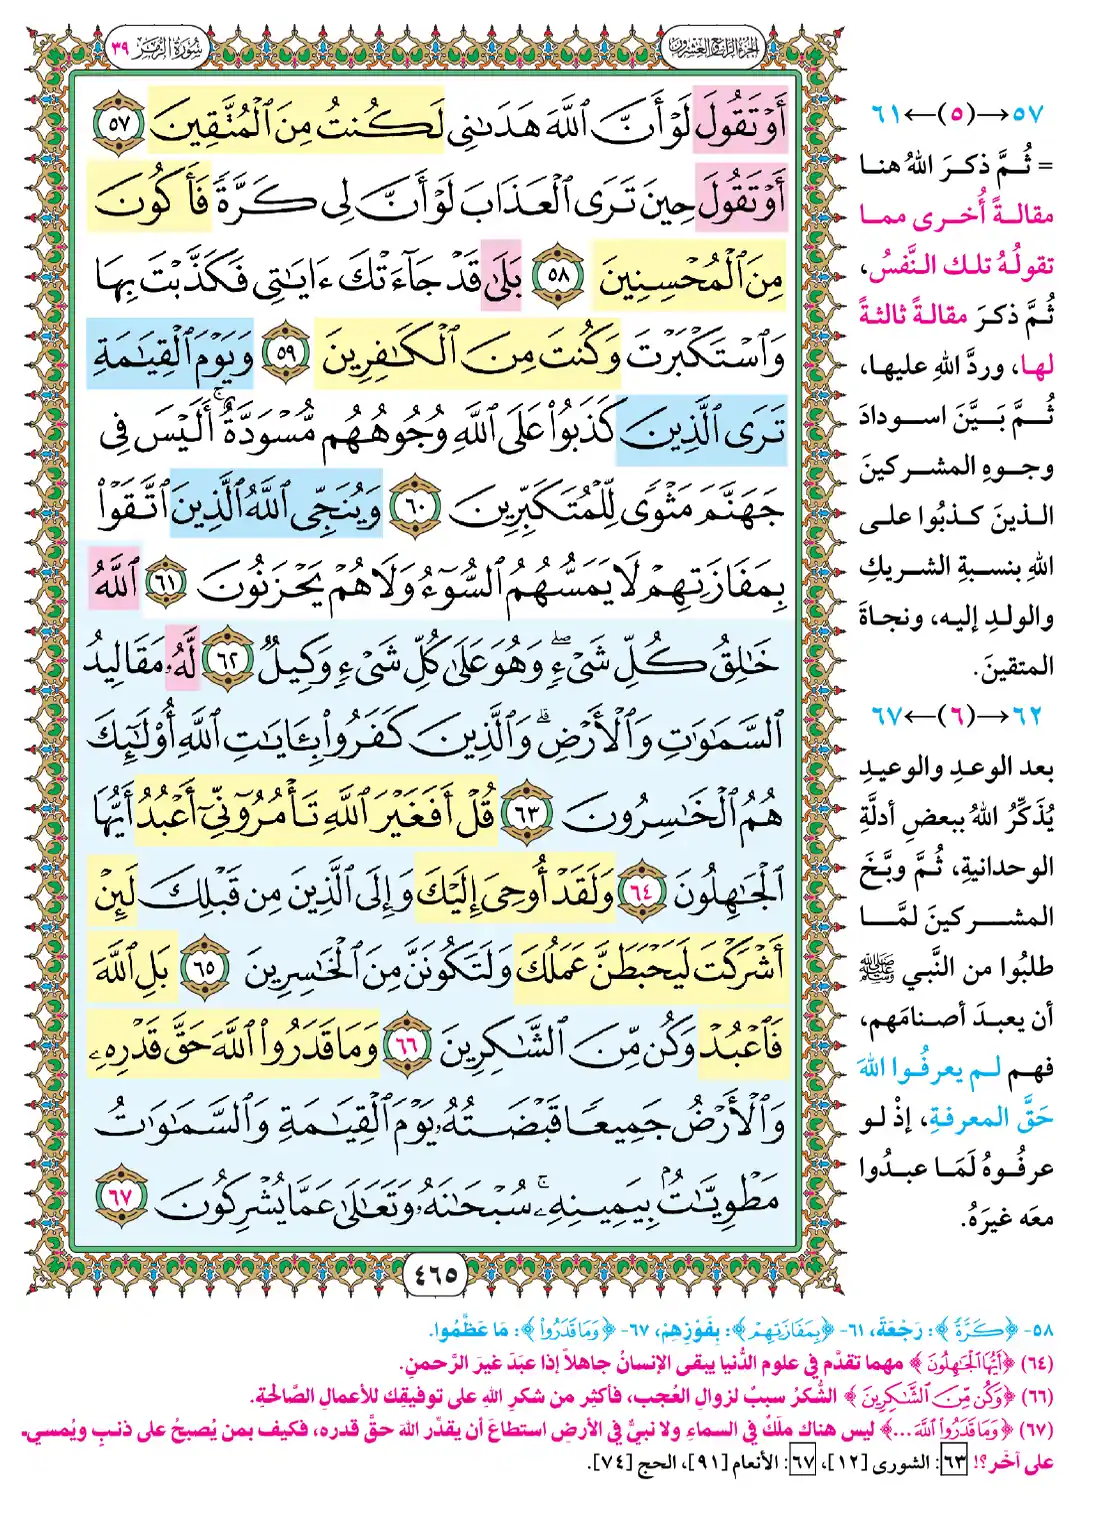 الجزء الرابع والعشرون
سورة الزمر ٣٩
أَوْ تَقُولَ لَوْ أَنَّ ٱللَّهَ هَدَىٰنِى لَكُنتُ مِنَ ٱلْمُتَّقِينَ ٥٧
أَوْ تَقُولَ حِينَ تَرَى ٱلْعَذَابَ لَوْ أَنَّ لِى كَرَّةً فَأَكُونَ
مِنَ ٱلْمُحْسِنِينَ ٥٨ بَلَىٰ قَدْ جَآءَتْكَ ءَايَٰتِى فَكَذَّبْتَ بِهَا
وَٱسْتَكْبَرْتَ وَكُنتَ مِنَ ٱلْكَٰفِرِينَ ٥٩ وَيَوْمَ ٱلْقِيَٰمَةِ
تَرَى ٱلَّذِينَ كَذَبُوا۟ عَلَى ٱللَّهِ وُجُوهُهُم مُّسْوَدَّةٌ ۚ أَلَيْسَ فِى
جَهَنَّمَ مَثْوًى لِّلْمُتَكَبِّرِينَ ٦٠ وَيُنَجِّى ٱللَّهُ ٱلَّذِينَ ٱتَّقَوْا۟
بِمَفَازَتِهِمْ لَا يَمَسُّهُمُ ٱلسُّوٓءُ وَلَا هُمْ يَحْزَنُونَ ٦١ ٱللَّهُ
خَٰلِقُ كُلِّ شَىْءٍ ۖ وَهُوَ عَلَىٰ كُلِّ شَىْءٍ وَكِيلٌ ٦٢ لَّهُۥ مَقَالِيدُ
ٱلسَّمَٰوَٰتِ وَٱلْأَرْضِ ۗ وَٱلَّذِينَ كَفَرُوا۟ بِـَٔايَٰتِ ٱللَّهِ أُو۟لَٰٓئِكَ
هُمُ ٱلْخَٰسِرُونَ ٦٣ قُلْ أَفَغَيْرَ ٱللَّهِ تَأْمُرُوٓنِّىٓ أَعْبُدُ أَيُّهَا
ٱلْجَٰهِلُونَ ٦٤ وَلَقَدْ أُوحِىَ إِلَيْكَ وَإِلَى ٱلَّذِينَ مِن قَبْلِكَ لَئِنْ
أَشْرَكْتَ لَيَحْبَطَنَّ عَمَلُكَ وَلَتَكُونَنَّ مِنَ ٱلْخَٰسِرِينَ ٦٥ بَلِ ٱللَّهَ
فَٱعْبُدْ وَكُن مِّنَ ٱلشَّٰكِرِينَ ٦٦ وَمَا قَدَرُوا۟ ٱللَّهَ حَقَّ قَدْرِهِۦ
وَٱلْأَرْضُ جَمِيعًا قَبْضَتُهُۥ يَوْمَ ٱلْقِيَٰمَةِ وَٱلسَّمَٰوَٰتُ
مَطْوِيَّٰتٌۢ بِيَمِينِهِۦ ۚ سُبْحَٰنَهُۥ وَتَعَٰلَىٰ عَمَّا يُشْرِكُونَ ٦٧
٤٦٥
٥٧→(٥)←٦١
= ثُمَّ ذكرَ اللهُ هنا
مقالةً أُخرى مما
تقولُهُ تلك النَّفسُ،
ثُمَّ ذكرَ مقالةً ثالثةً
لها، وردَّ اللهِ عليها،
ثُمَّ بَيَّنَ اسودادَ
وجوهِ المشركينَ
الذينَ كذبُوا على
اللهِ بنسبةِ الشريكِ
والولدِ إليه، ونجاةَ
المتقينَ.
٦٢→(٦)←٦٧
بعد الوعدِ والوعيدِ
يُذَكِّرُ اللهُ ببعضِ أدلَّةِ
الوحدانيةِ، ثُمَّ وبَّخَ
المشركينَ لمَّا
طلبُوا من النَّبي ﷺ
أن يعبدَ أصنامَهم،
فهم لم يعرفُوا اللهَ
حَقَّ المعرفةِ، إذْ لو
عرفُوهُ لَمَا عبدُوا
معَه غيرَهُ.
٥٨- ﴿كَرَّةً﴾: رَجْعَةً، ٦١- ﴿بِمَفَازَتِهِمْ﴾: بِفَوْزِهِمْ، ٦٧- ﴿وَمَا قَدَرُوا۟﴾: مَا عَظَّمُوا.
(٦٤) ﴿أَيُّهَا ٱلْجَٰهِلُونَ﴾ مهما تقدَّم في علوم الدُّنيا يبقى الإنسانُ جاهلاً إذا عبَدَ غيرَ الرَّحمنِ.
(٦٦) ﴿وَكُن مِّنَ ٱلشَّٰكِرِينَ﴾ الشُّكرُ سببٌ لزوالِ العُجب، فأكثِر من شكرِ اللهِ على توفيقِك للأعمالِ الصَّالحَةِ.
(٦٧) ﴿وَمَا قَدَرُوا۟ ٱللَّهَ ...﴾ ليس هناك ملَكٌ في السماءِ ولا نبيٌّ في الأرضِ استطاعَ أن يقدِّر اللهَ حقَّ قدره، فكيف بمن يُصبحُ على ذنبٍ ويُمسي
على آخَر؟! ٦٣: الشورى [١٢]، ٦٧: الأنعام [٩١]، الحج [٧٤].